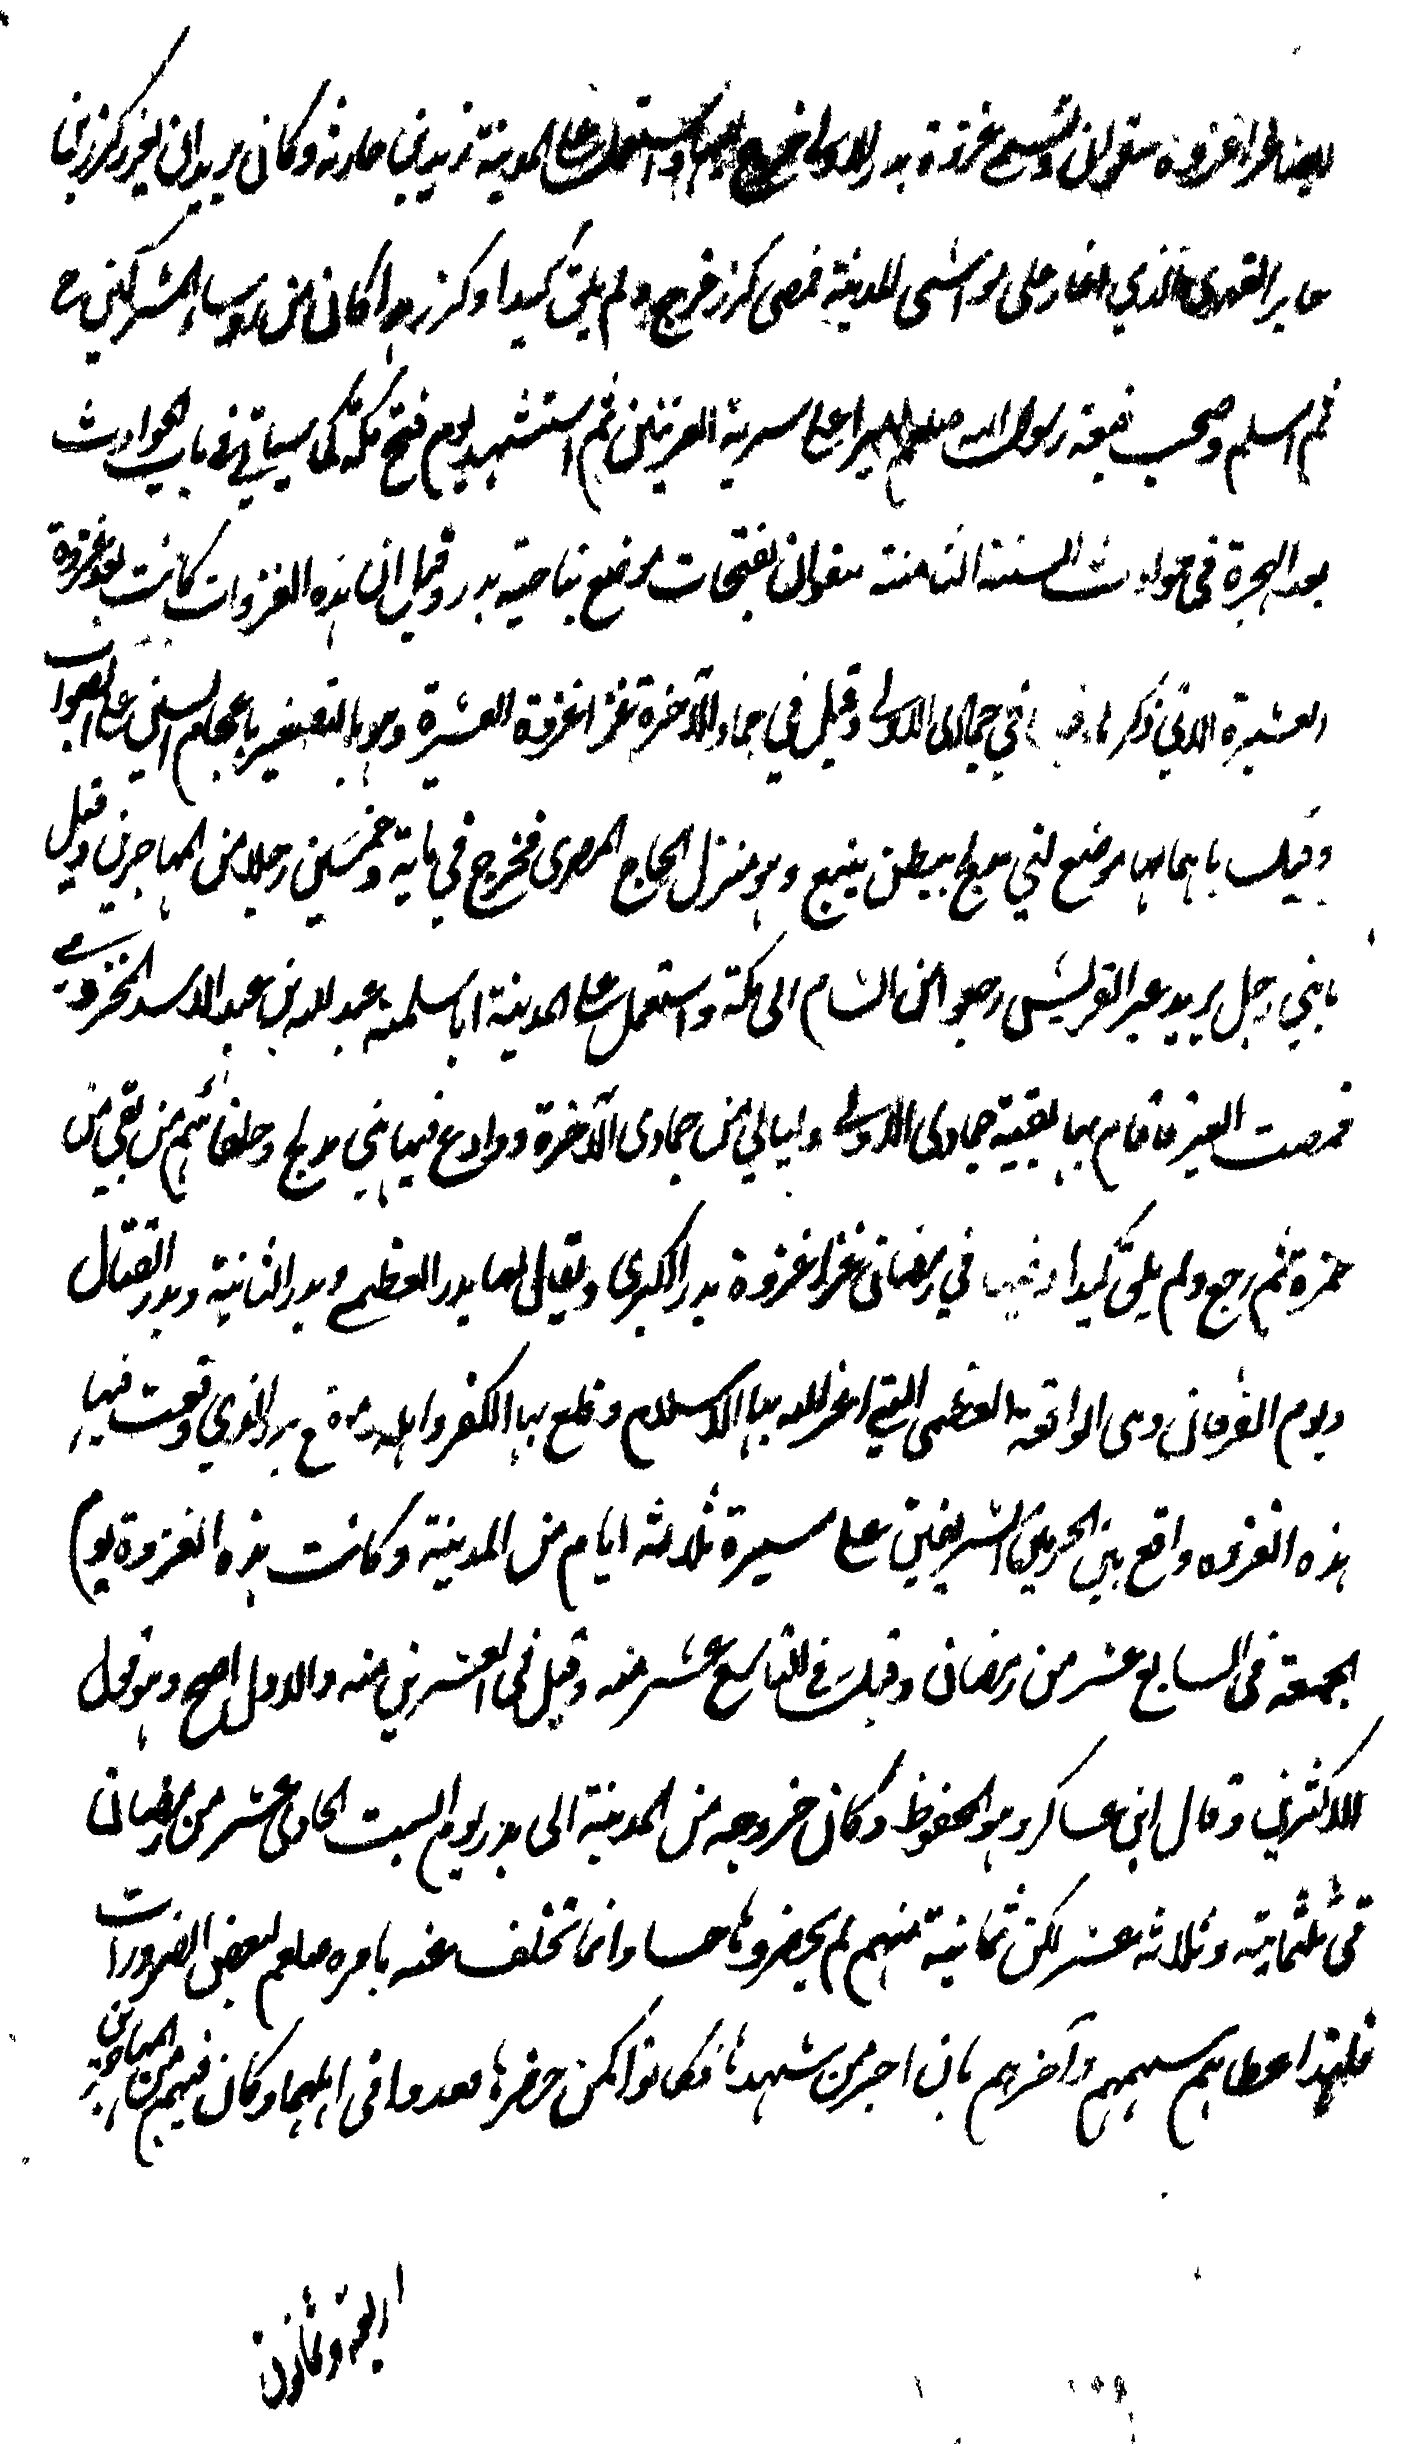 ايضا غزا غزوة سفوان وتسمى غزوة بدر الاولى خرج اليها واستعمل على المدينة زيد بن حارثة وكان يريدان يغزو كرز بن
جابر الفهرى الذي اغار على مواشى المدينة فمضى كرز فرجع ولم يلق كيدا وكرز هذا كان من روساء المشركين
ثم اسلم وصحب فبعثه رسول الله صلعم اميرا على سرية العرنيين ثم استشهد يوم فتح مكة كما سياتي في باب الحوادث
بعد الهجرة في حوادث السنة الثامنة سفوان بفتحات موضع بناحية بدر وقيل ان هذه الغزوات كانت بعد غزوة
العشيرة الاتي ذكرها في جمادى الاولى وقيل في جمادى الآخرة غزا غزوة العشيرة وهو بالتصغير باعجام الشين على الصواب
وقيل باهمالها موضع لبني مدلج ببطن ينبع وهو منزل الحاج المصرى فخرج في مايه وخمسين رجلا من المهاجرين وقيل
مايتي رجل يريد عير القريش رجعوا من الشام الى مكة واستعمل على المدينة ابا سلمة عبد الله بن عبد الاسد المخزومي
فمضت العير فاقام بها بقية جمادى الاولى وليالي من جمادى الآخرة ووادع فيها بني مدلج وحلفائهم من بقي من
ضمرة ثم رجع ولم يلق كيدا وفيها في رمضان غزا غزوة بدر الكبرى ويقال لها بدر العظمى وبدر الثانية وبدر القتال
ويوم الفرقان وهى الواقعة العظمى التي اعز الله بها الاسلام وقلع بها الكفر واهله موضع بدر الذي وقعت فيها
هذه الغزوة واقع بين الحرمين الشريفين على مسيرة ثلاثة ايام من المدينة وكانت هذه الغزوة يوم
الجمعة في السابع عشر من رمضان وقيل في التاسع عشر منه وقيل في العشرين منه والاول اصح وهو قول
الاكثرين وقال ابن عساكر وهو المحفوظ وكان خروجه من المدينة الى بدر يوم السبت الحادي عشر من رمضان
في ثلثماية وثلاثة عشر لكن ثمانية منهم لم يحضروها حسا وانما تخلف عنه بامره صلعم لبعض الضرورات
فلهذا اعطاهم سهمهم وآخرهم بان اجر من شهدها فكانوا كمن حضرها معدودا في اهلها وكان فيهم من المهاجرين
اربعة وثمانون